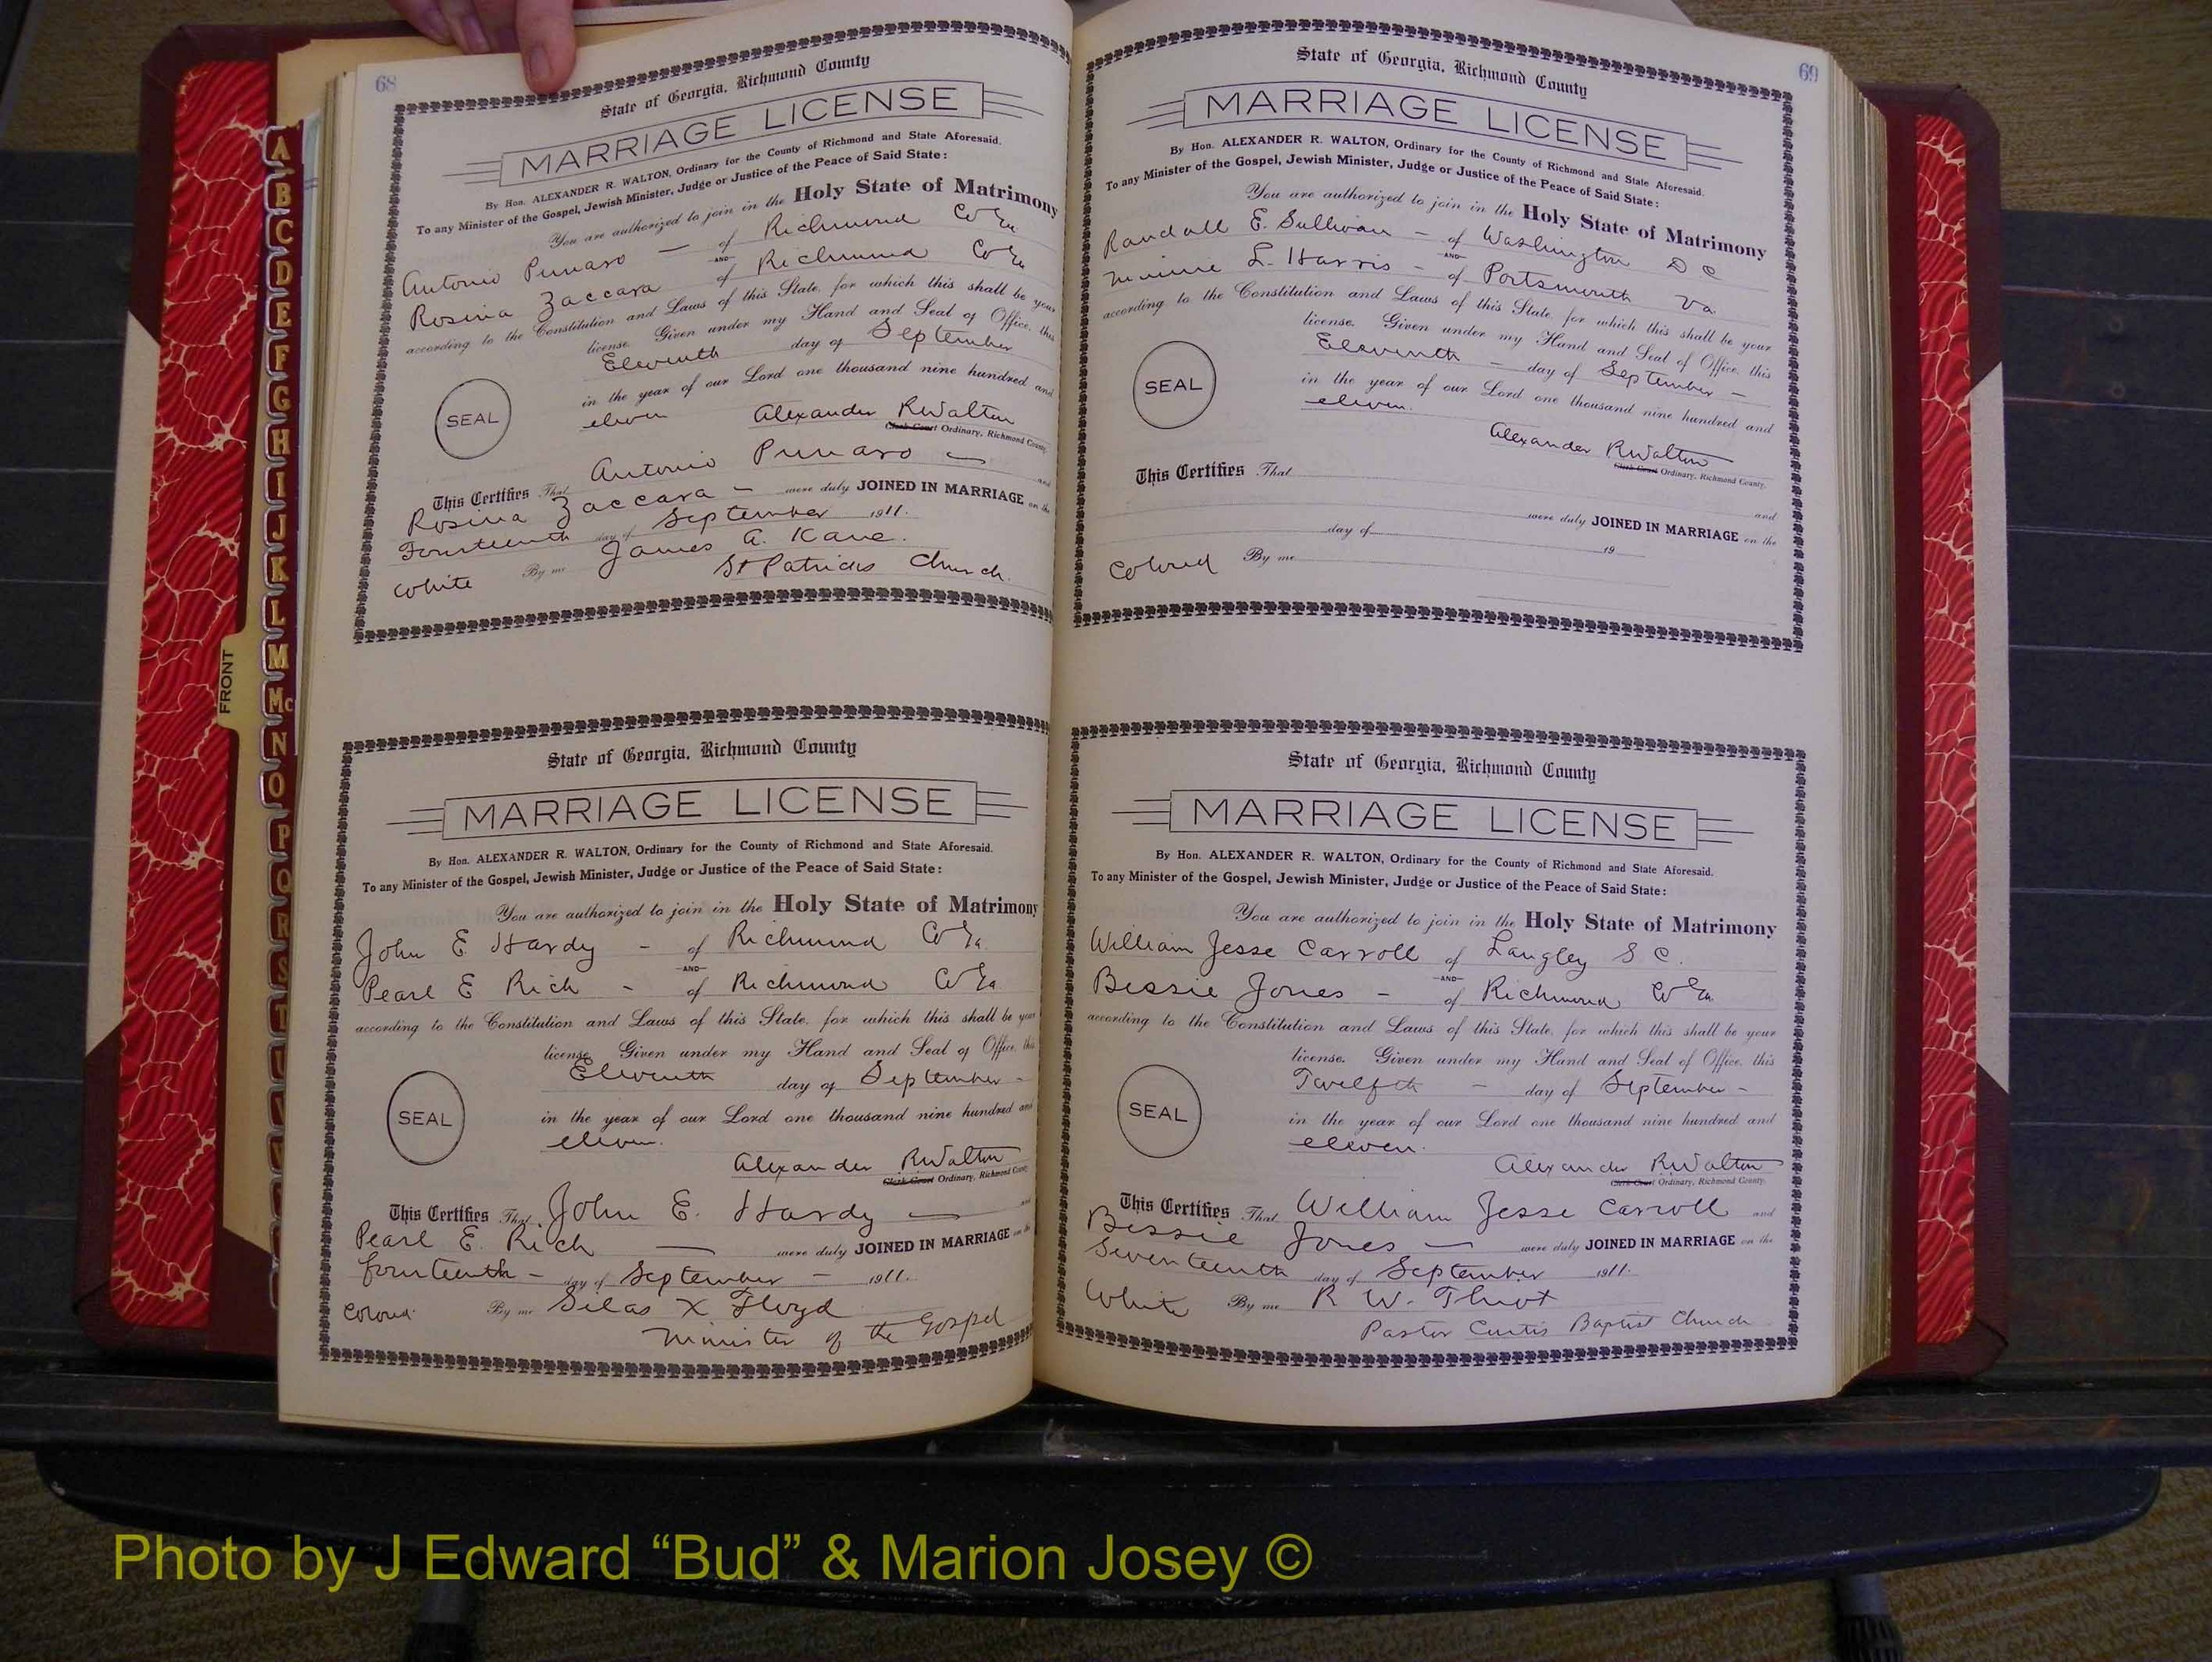 68
State of Georgia, Richmond County
MARRIAGE LICENSE
By Hon. ALEXANDER R. WALTON, Ordinary for the County of Richmond and State Aforesaid.
To any Minister of the Gospel, Jewish Minister, Judge or Justice of the Peace of Said State:
You are authorized to join in the Holy State of Matrimony
Antonio Punaro — of Richmond Co Ga
AND
Rosina Zaccara of Richmond Co Ga
according to the Constitution and Laws of this State, for which this shall be your
license. Given under my Hand and Seal of Office, this
Eleventh day of September
in the year of our Lord one thousand nine hundred and
SEAL
eleven Alexander R Walton
Clerk Court Ordinary, Richmond County
This Certifies That Antonio Punaro — and
Rosina Zaccara — were duly JOINED IN MARRIAGE on the
Fourteenth day of September 1911.
White By me James A. Kane.
St Patricks Church.
State of Georgia, Richmond County
MARRIAGE LICENSE
By Hon. ALEXANDER R. WALTON, Ordinary for the County of Richmond and State Aforesaid.
To any Minister of the Gospel, Jewish Minister, Judge or Justice of the Peace of Said State:
You are authorized to join in the Holy State of Matrimony
John E Hardy - of Richmond Co Ga.
AND
Pearl E Rich - of Richmond Co Ga
according to the Constitution and Laws of this State, for which this shall be your
license. Given under my Hand and Seal of Office, this
Eleventh day of September -
SEAL
in the year of our Lord one thousand nine hundred and
eleven. Alexander R Walton
Clerk Court Ordinary, Richmond County
This Certifies That John E. Hardy — and
Pearl E. Rich — were duly JOINED IN MARRIAGE on the
fourteenth - day of September - 1911.
Colored By me Silas X Floyd
Minister of the Gospel
69
State of Georgia, Richmond County
MARRIAGE LICENSE
By Hon. ALEXANDER R. WALTON, Ordinary for the County of Richmond and State Aforesaid.
To any Minister of the Gospel, Jewish Minister, Judge or Justice of the Peace of Said State:
You are authorized to join in the Holy State of Matrimony
Randall E. Sullivan - of Washington D C
AND
Minnie L. Harris - of Portsmouth Va.
according to the Constitution and Laws of this State, for which this shall be your
license. Given under my Hand and Seal of Office, this
Eleventh - day of September -
SEAL
in the year of our Lord one thousand nine hundred and
eleven.
Alexander R Walton
Clerk Court Ordinary, Richmond County.
This Certifies That
and
were duly JOINED IN MARRIAGE on the
day of 19
Colored By me
State of Georgia, Richmond County
MARRIAGE LICENSE
By Hon. ALEXANDER R. WALTON, Ordinary for the County of Richmond and State Aforesaid.
To any Minister of the Gospel, Jewish Minister, Judge or Justice of the Peace of Said State:
You are authorized to join in the Holy State of Matrimony
William Jesse Carroll of Langley S C.
AND
Bessie Jones - of Richmond Co Ga.
according to the Constitution and Laws of this State, for which this shall be your
license. Given under my Hand and Seal of Office, this
Twelfth - day of September -
SEAL
in the year of our Lord one thousand nine hundred and
eleven.
Alexander R Walton
Clerk Court Ordinary, Richmond County.
This Certifies That William Jesse Carroll and
Bessie Jones — were duly JOINED IN MARRIAGE on the
Seventeenth day of September 1911.
White By me R. W. Thiot
Pastor Curtis Baptist Church
A
B
C
D
E
F
G
H
I
J
K
L
M
Mc
N
O
P
Q
R
S
T
FRONT
Photo by J Edward “Bud” & Marion Josey ©